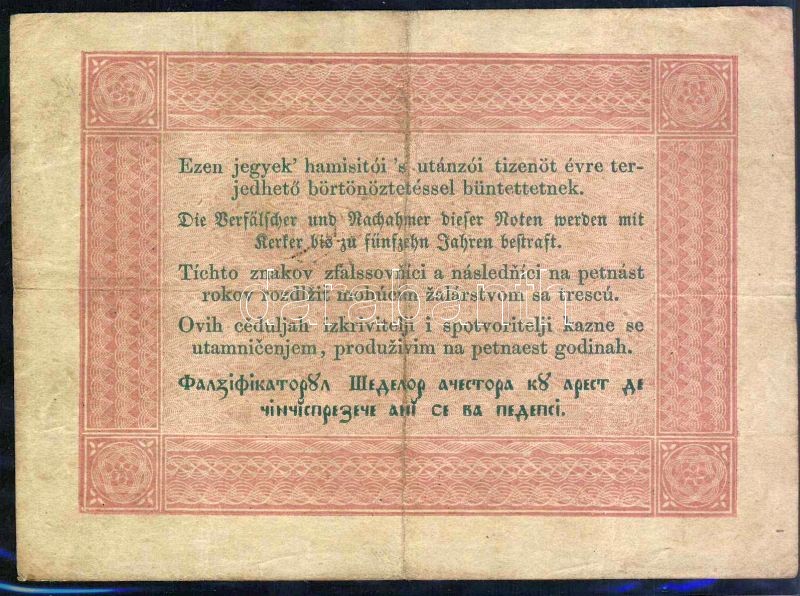 Ezen jegyek' hamisitói 's utánzói tizenöt évre ter-
jedhető börtönöztetéssel büntettetnek.
Die Verfälscher und Nachahmer dieser Noten werden mit
Kerker bis zu fünfzehn Jahren bestraft.
Tíchto znakov zfalssovníci a následňíci na petnást
rokov rozdlžit mohúcim žalárstvom sa trescú.
darabanth
Ovih céduljah izkrivitelji i spotvoritelji kazne se
utamničenjem, produživim na petnaest godinah.
Фалзіфікаторꙋл Шеделор ачестора кꙋ арест де
чінчіспрезече ані се ва педепсі.